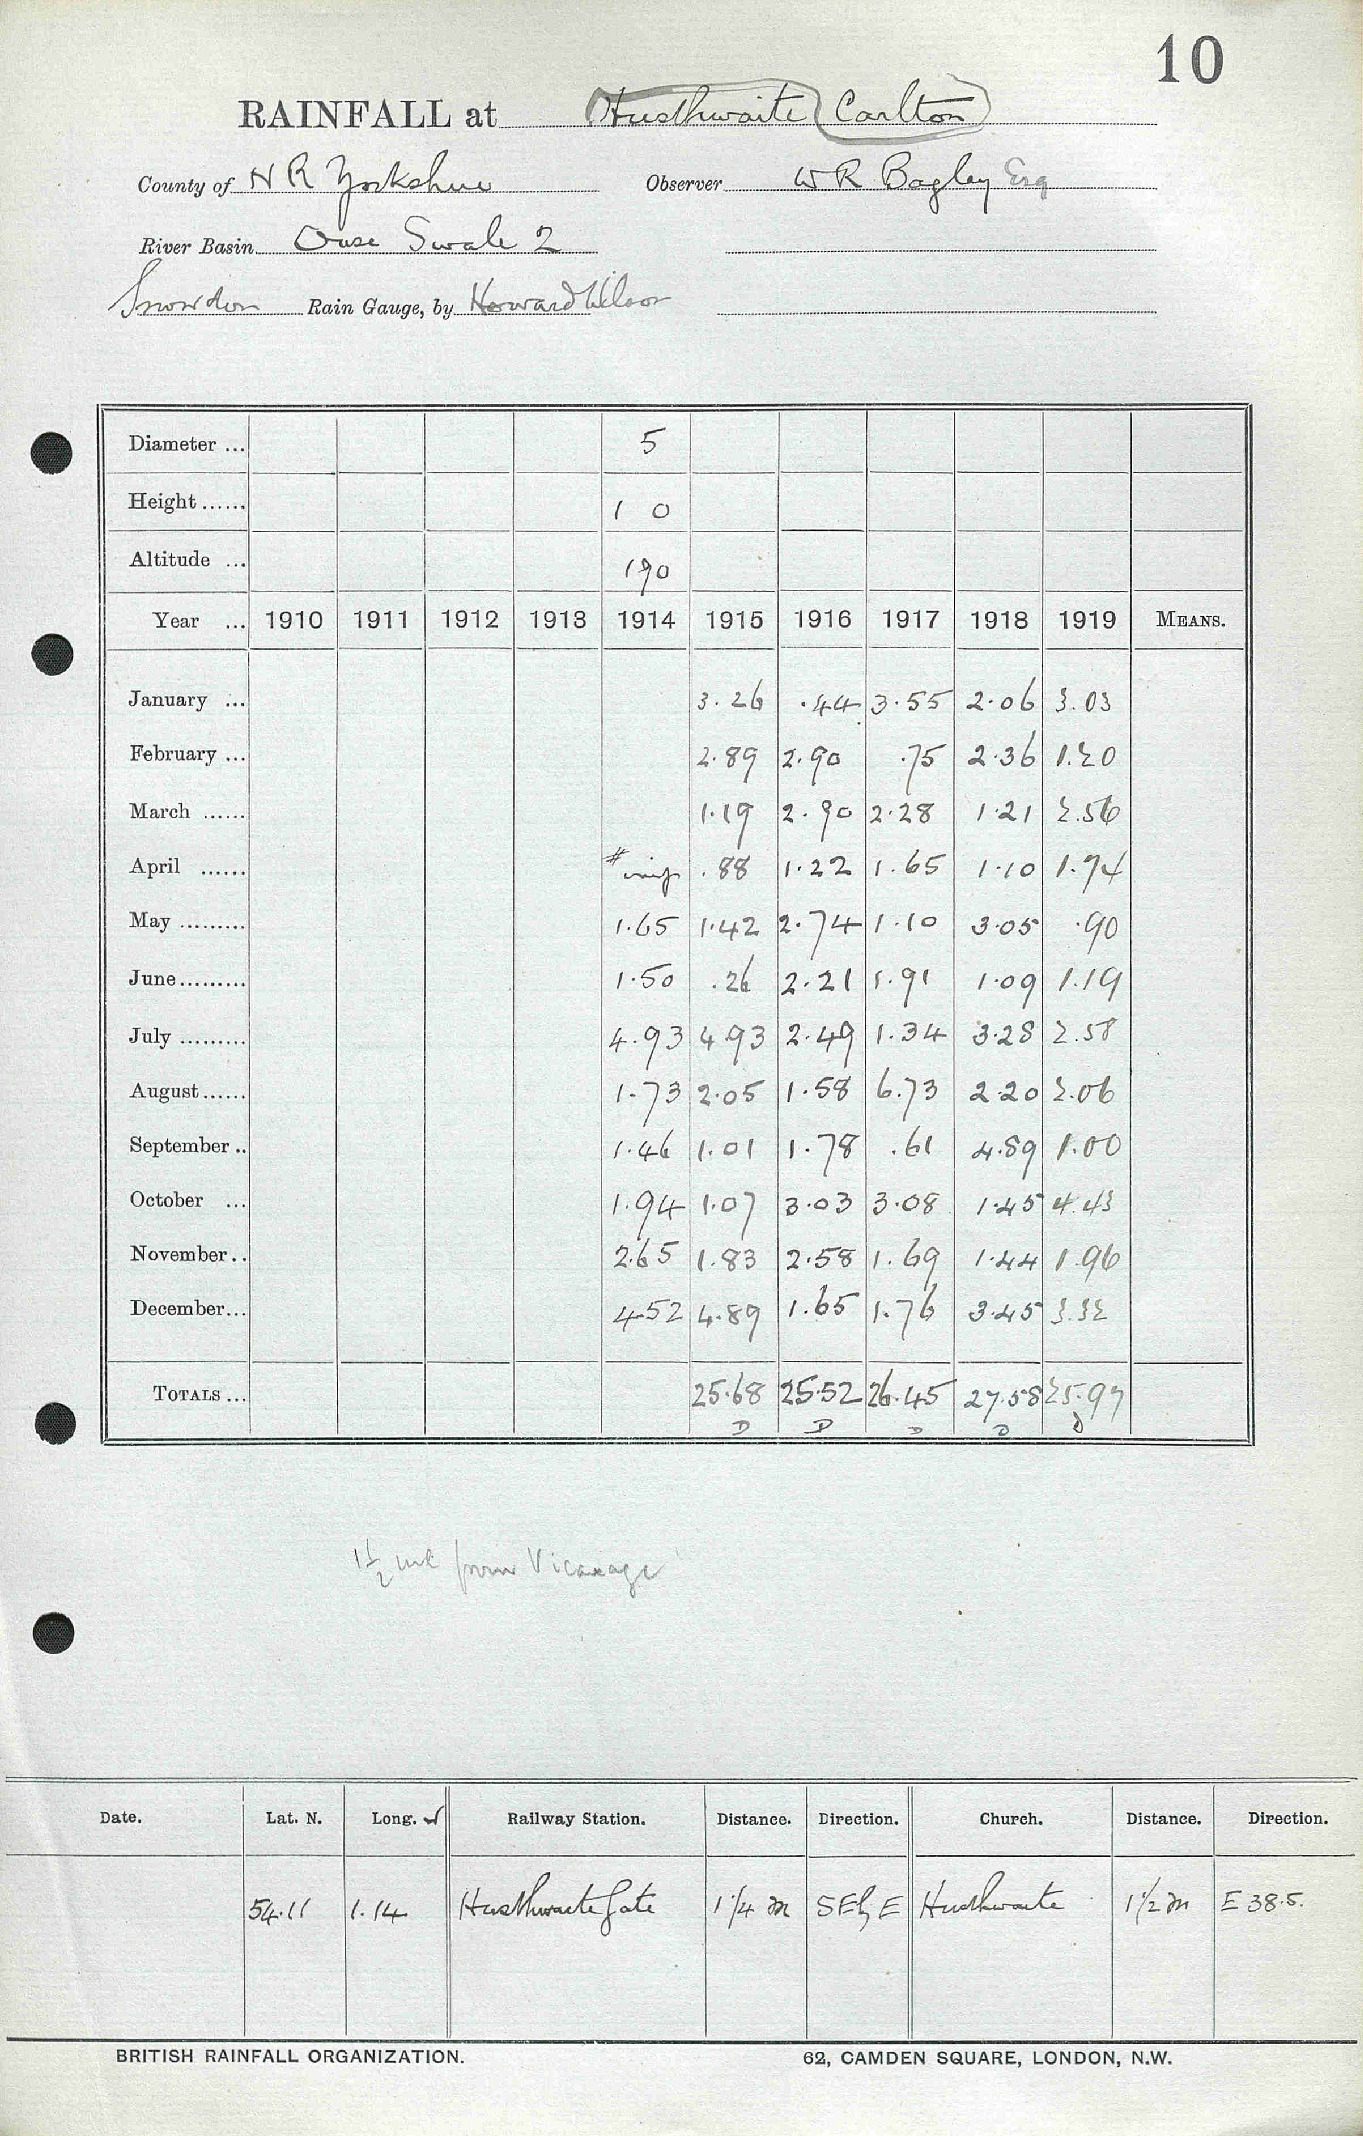 10
RAINFALL at Husthwaite Carlton
County of N R Yorkshire Observer W R Bagley Esq
River Basin Ouse Swale 2
Snowdon Rain Gauge, by Howard Wilson
Diameter ... 5
Height ...... 1 0
Altitude ... 190
Year ... 1910 1911 1912 1913 1914 1915 1916 1917 1918 1919 MEANS.
January ... 3.26 .44 3.55 2.06 3.03
February ... 2.89 2.90 .75 2.36 1.20
March ...... 1.19 2.90 2.28 1.21 2.56
April ...... # .88 1.22 1.65 1.10 1.74
May ......... 1.65 1.42 2.74 1.10 3.05 .90
June ......... 1.50 .26 2.21 1.91 1.09 1.19
July ......... 4.93 4.93 2.49 1.34 3.28 2.58
August ...... 1.73 2.05 1.58 6.73 2.20 2.06
September .. 1.46 1.01 1.78 .61 4.89 1.00
October ... 1.94 1.07 3.03 3.08 1.45 4.43
November .. 2.65 1.83 2.58 1.69 1.44 1.96
December ... 4.52 4.89 1.65 1.76 3.45 3.32
TOTALS ... 25.68 25.52 26.45 27.58 25.97
D D D D D
1½ ml from Vicarage
Date. Lat. N. Long. W Railway Station. Distance. Direction. Church. Distance. Direction.
54.11 1.14 Husthwaite Gate 1¼ m SE by E Husthwaite 1½ m E 38.S.
BRITISH RAINFALL ORGANIZATION. 62, CAMDEN SQUARE, LONDON, N.W.